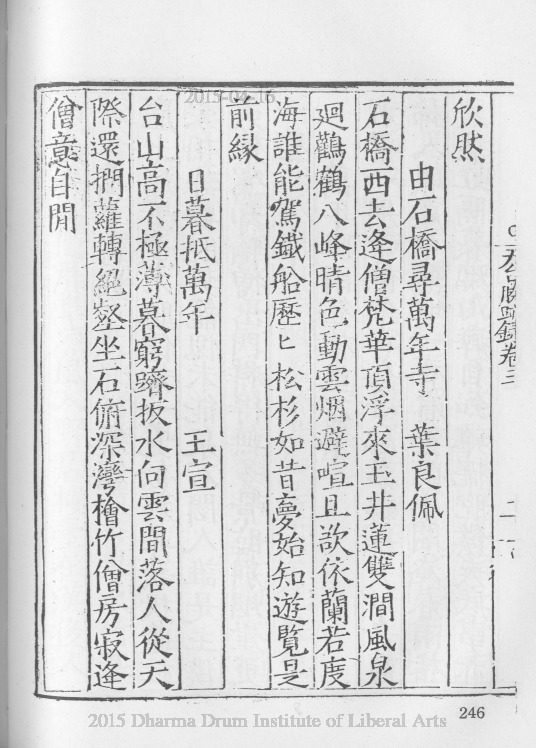 勝蹟錄卷三
欣然
由石橋尋萬年寺 葉良佩
石橋西去逢僧梵華頂浮來玉井蓮雙澗風泉
迴鸛鶴八峰晴色動雲烟避喧且欲依蘭若度
海誰能駕鐵船歷匕松杉如昔夢始知遊覽是
前緣
日暮抵萬年 王宣
台山高不極薄暮窮躋扳水向雲間落人從天
際還捫蘿轉絕壑坐石俯深灣檜竹僧房寂逢
僧意自閒
246
2015 Dharma Drum Institute of Liberal Arts